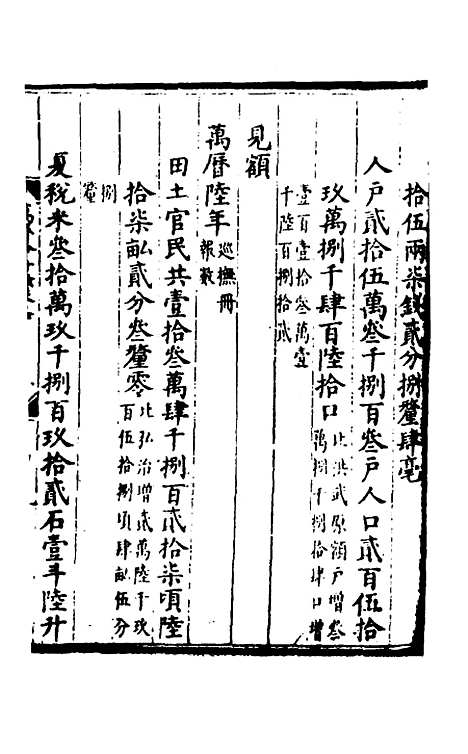 拾伍兩柒錢貳分捌釐肆毫
人戶貳拾伍萬叄千捌百叄戶人口貳百伍拾
玖萬捌千肆百陸拾口比洪武原額戶增叄
萬捌千捌拾肆口增
壹百壹拾叄萬壹
千陸百捌拾貳
見額
萬曆陸年巡撫冊
報數
田土官民共壹拾叄萬肆千捌百貳拾柒頃陸
拾柒畝貳分叄釐零比弘治增貳萬陸千玖
百伍拾捌頃肆畝伍分
捌
釐
夏稅米叄拾萬玖千捌百玖拾貳石壹斗陸升